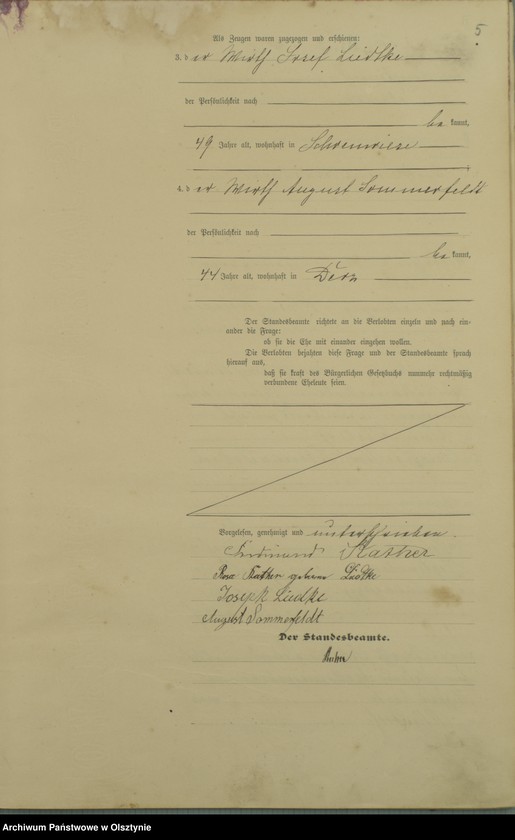 5
Als Zeugen waren zugezogen und erschienen:
3. der Wirth Josef Liedtke
der Persönlichkeit nach
be kannt,
49 Jahre alt, wohnhaft in Schoenwiese
4. der Wirth August Sommerfeldt
der Persönlichkeit nach
be kannt,
44 Jahre alt, wohnhaft in Derz
Der Standesbeamte richtete an die Verlobten einzeln und nach ein-
ander die Frage:
ob sie die Ehe mit einander eingehen wollen.
Die Verlobten bejahten diese Frage und der Standesbeamte sprach
hierauf aus,
daß sie kraft des Bürgerlichen Gesetzbuchs nunmehr rechtmäßig
verbundene Eheleute seien.
Vorgelesen, genehmigt und unterschrieben.
Ferdinand Kather
Rosa Kather geborne Liedtke
Joseph Liedke
August Sommerfeldt
Der Standesbeamte.
Archiwum Państwowe w Olsztynie